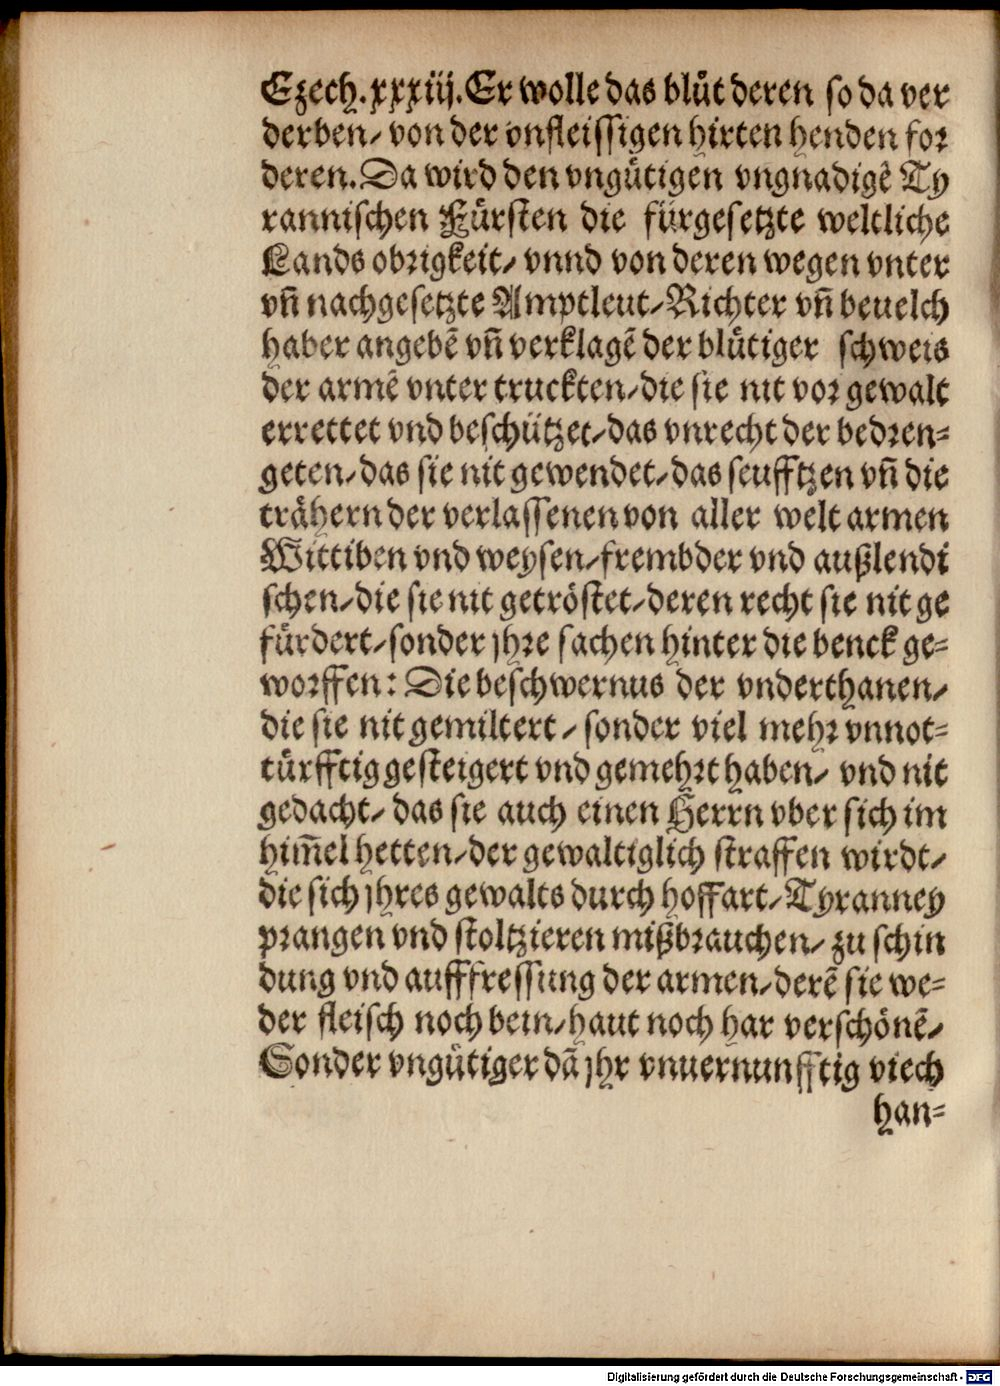 Ezech.xxxiij.Er wolle das blůt deren so da ver
derben/ von der vnfleissigen hirten henden for
deren. Da wird den vngütigen vngnadigẽ Ty
rannischen Fürsten die fürgesetzte weltliche
Lands obrigkeit/ vnnd von deren wegen vnter
vñ nachgesetzte Amptleut/ Richter vñ beuelch
haber angebẽ vñ verklagẽ der blůtiger schweis
der armẽ vnter truckten/ die sie nit vor gewalt
errettet vnd beschützet/ das vnrecht der bedren=
geten/ das sie nit gewendet/ das seufftzen vñ die
trähern der verlassenen von aller welt armen
Wittiben vnd weysen/ frembder vnd außlendi
schen/ die sie nit getröstet/ deren recht sie nit ge
fürdert/ sonder jhre sachen hinter die benck ge=
worffen: Die beschwernus der vnderthanen/
die sie nit gemiltert/ sonder viel mehr vnnot=
türfftig gesteigert vnd gemehrt haben/ vnd nit
gedacht/ das sie auch einen Herrn vber sich im
him̃el hetten/ der gewaltiglich straffen wirdt/
die sich jhres gewalts durch hoffart/ Tyranney
prangen vnd stoltzieren mißbrauchen/ zu schin
dung vnd aufffressung der armen/ derẽ sie we=
der fleisch noch bein/ haut noch har verschönẽ/
Sonder vngütiger dã jhr vnuernunfftig viech
han=
Digitalisierung gefördert durch die Deutsche Forschungsgemeinschaft - DFG